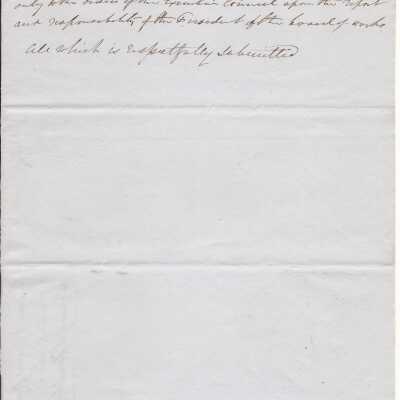 only to the orders of the Executive Council upon the Report
and responsibility of the President of the board of works
All which is respectfully submitted